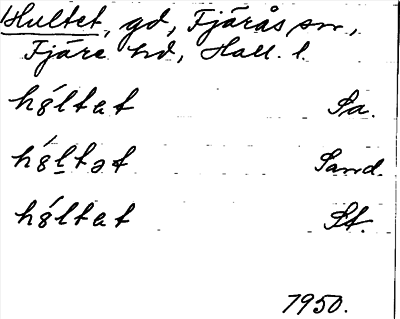 Hultet, gd, Fjärås sn,
Fjäre hd, Hall. l.
hó̤ltat Sa.
hó̤l̠tət Sand.
hó̤ltat St.
1950.